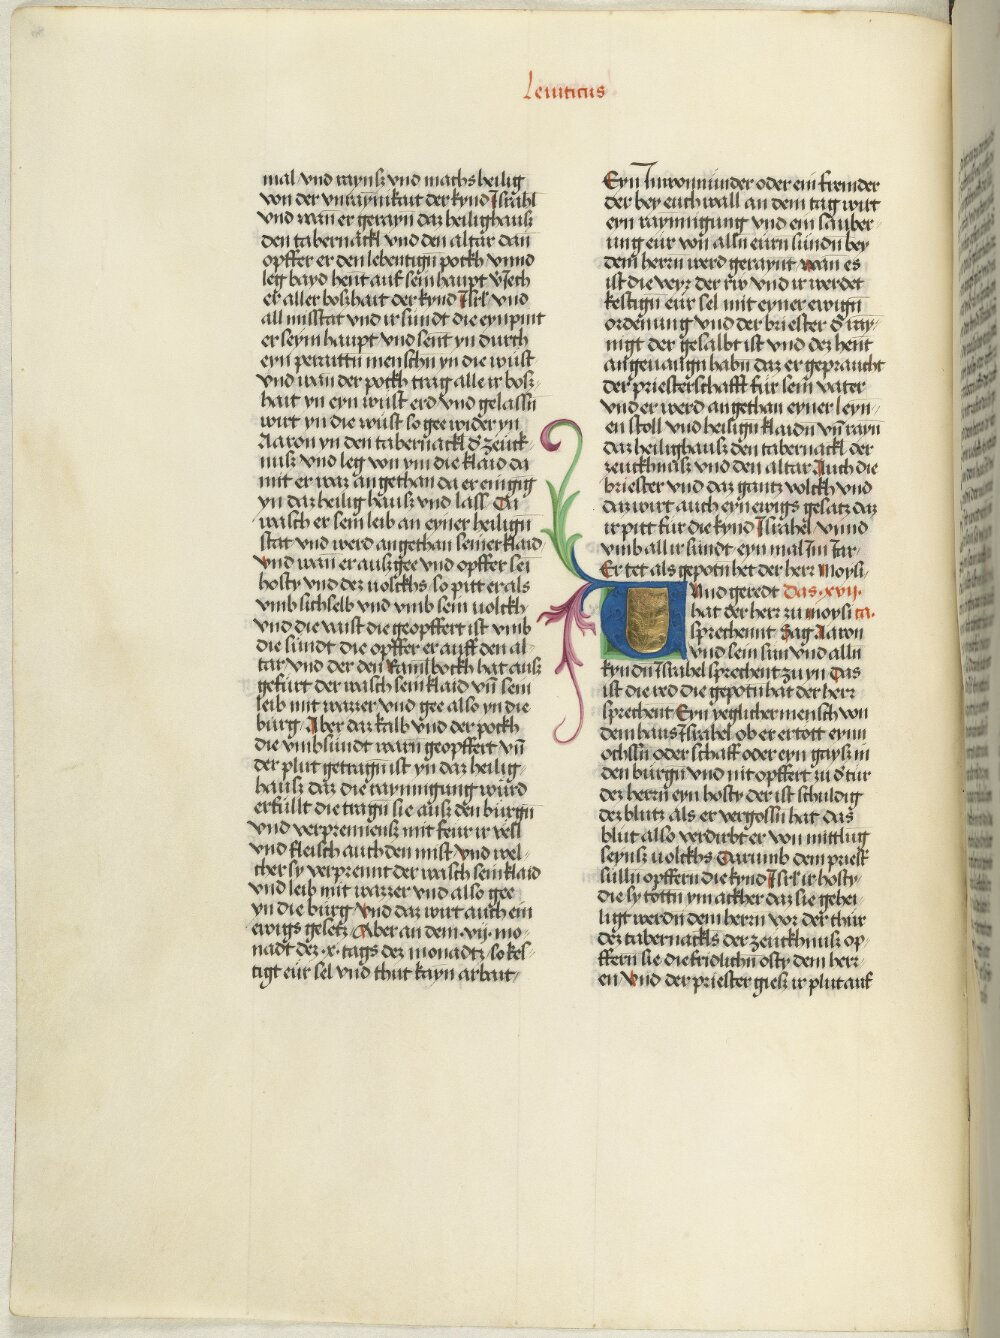 Leuiticus
mal vnd raynß vnd machs heilig
von der vnraynikait der kynd Israhl
vnd wan er gerayn daz heilighauß
den tabernackl vnd den altar dan
opffer er den lebentign pockh vnnd
leg bayd hent auf sein haupt v̈Jech
er aller boßhait der kynd Isrl vnd
all misstat vnd ir sundt die eynpint
er seym haupt vnd sent yn durch
eyn peraittn menschn yn die wüst
vnd wan der pockh trag alle ir boß-
hait yn eyn wüst erd vnd gelassn
wirt yn die wüst so gee wider yn
Aaron yn den tabernackl d' zeuck-
nuß vnd leg von ym die klaid da
mit er waz angethan da er eingig
yn daz heilig hauß vnd lass Da
wasch er sein leib an eyner heilign
stat vnd werd angethan seiner klaid
vnd wan er aussgee vnd opffer sei
hosty vnd dez uolckhs so pitt er als
vmb sich selb vnd vmb sein uolckh
vnd die waist die geopffert ist vmb
die sündt die opffer er auff den al-
tar vnd der den kamlbockh hat auß
gefürt der wasch sein klaid vn̄ sein
leib mit wazzer vnd gee also yn die
bürg Aber daz kalb vnd der pockh
die vmb sündt warn geopffert vn̄
der plut getragn ist yn daz heilig-
hauß daz die raynnigung würd
erfüllt die tragn sie auß den bürgn
vnd verprennens mit feur ir vell
vnd fleisch auch den mist vnd wel-
cher sy verprennt der wasch sein klaid
vnd leib mit wazzer vnd also gee
yn die bürg Vnd daz wirt auch ein
ewigs gesetz Aber an dem .vij. mo-
nadt dez .x. tags dez monadtz so kes-
tigt eür sel vnd thut kayn arbait-
Eyn Inwonnünder oder ein fremder
der bey euch wall an dem tag wirt
eyn raynnigung vnd ein sauber-
ung eür von alln eürn sündn bey
dem herrn werd geraynt wan es
ist die veyr der rw vnd ir werdet
kestign eür sel mit eyner ewign
ordenung vnd der briester d' ray-
nigt der gesalbt ist vnd dez hent
angeuangn habn daz er gepraucht
der priesterschafft für sein vater
vnd er werd angethan eyner leyn-
en stoll vnd heilign klaidn vn̄ rayn
daz heilighauß den tabernackl der
zeuckhnuß vnd den altar Auch die
briester vnd daz gantz volckh vnd
daz wirt auch eyn ewigs gesatz daz
ir pitt für die kynd Israhel vnnd
vmb all ir sündt eyn mal Im Iar-
Er tet als gepotn het der herr moysi-
Vnd geredt Das .xvij.
hat der herr zu moysi ca.
sprechennt Sag Aaron
vnd sein sün vnd alln
kyndn Israhel sprechent zu yn Das
ist die red die gepotn hat der herr
sprechent Eyn yeglicher mensch von
dem haus Israhel ob er ertott eynn
ochssn oder schaff oder eyn gayß in
den bürgn vnd nit opffert zu d' tür
dez herrn eyn hosty der ist schuldig
dez blutz als er vergossn hat das
blut also verdirbt er von mittlug
seynß uolckhs Darumb dem priest'
sülln opffern die kynd Isrl ir hosty-
die sy tottn ym ackher daz sie gehei-
ligt werdn dem herrn vor der thür
dez tabernackls der zeuckhnuß op-
ffern sie die fridlichn osty dem herr-
en Vnd der priester gieß ir plut auf